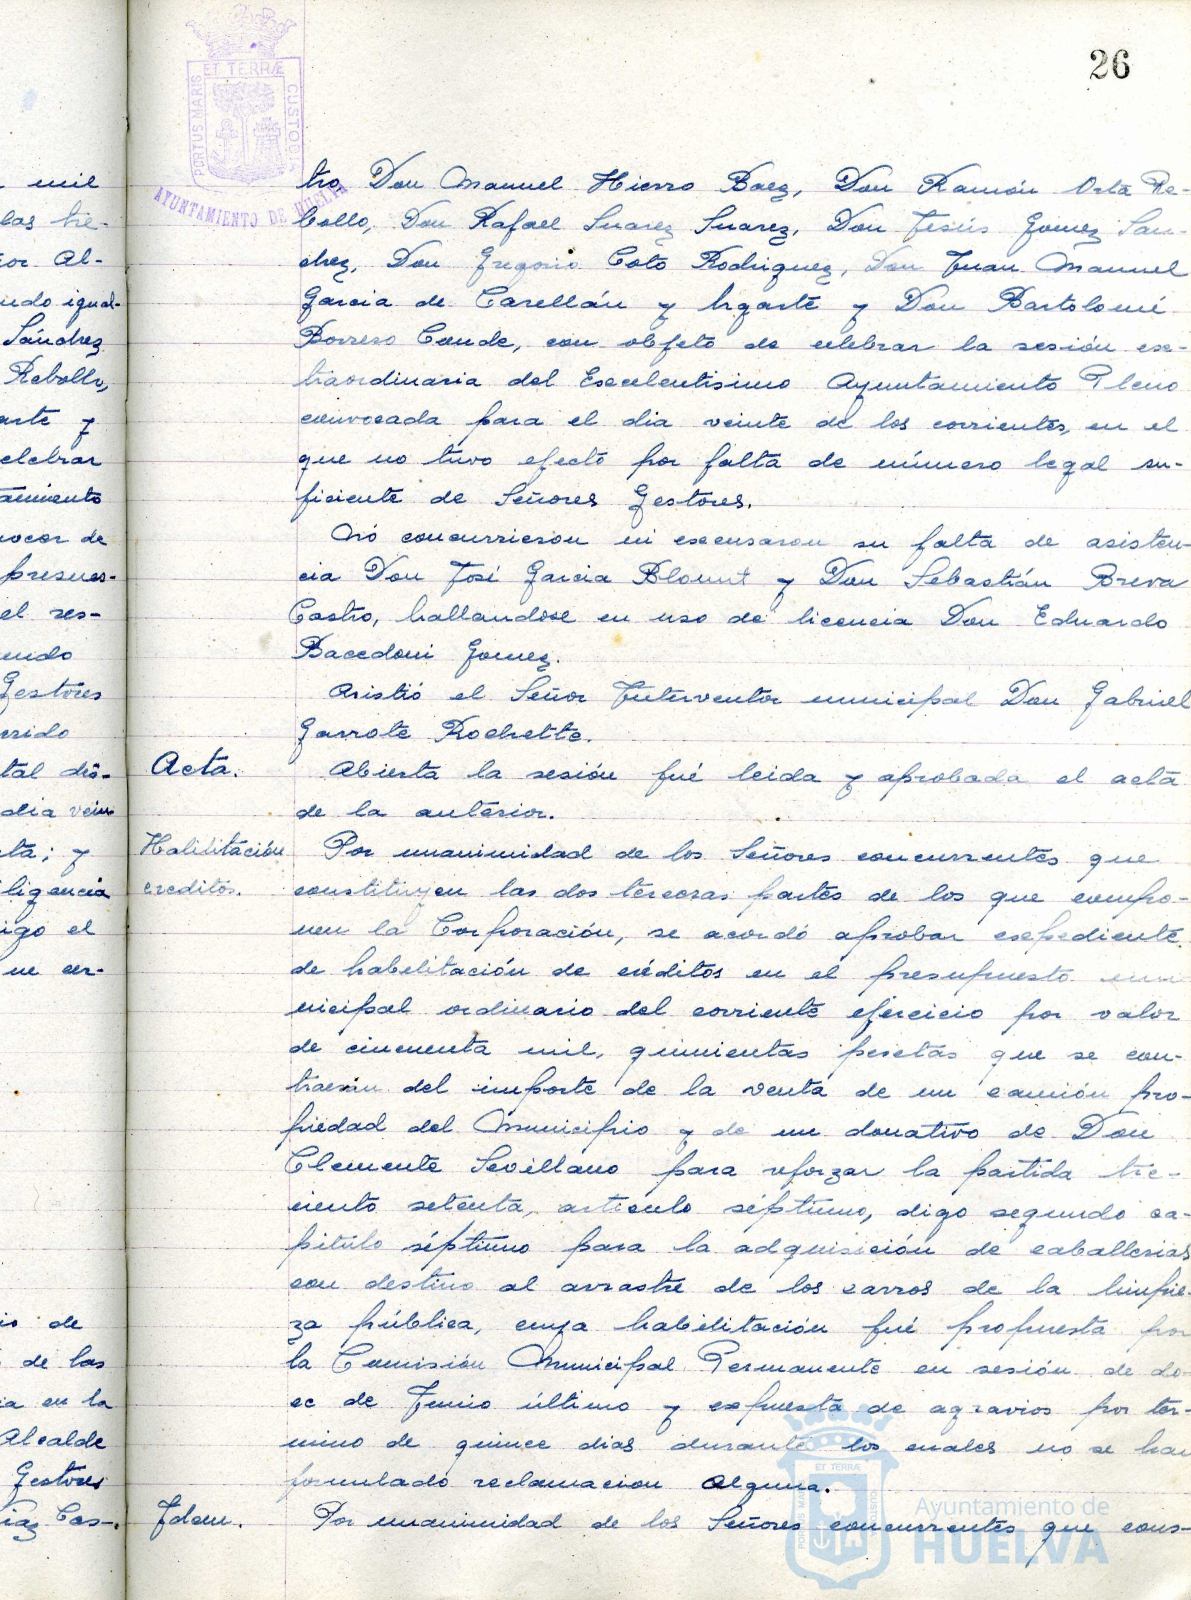 26
PORTUS MARIS ET TERRÆ CUSTODIA
AYUNTAMIENTO DE HUELVA
tro, Don Manuel Hierro Baez, Don Ramón Orta Re-
bollo, Don Rafael Suarez Suarez, Don Jesús Gomez San-
chez, Don Gregorio Coto Rodriguez, Don Juan Manuel
Garcia de Carellán y Ugarte y Don Bartolomé
Borrero Conde, con objeto de celebrar la sesión ex-
traordinaria del Excelentisimo Ayuntamiento Pleno
convocada para el dia veinte de los corrientes, en el
que no tuvo efecto por falta de número legal su-
ficiente de Señores Gestores.
Nó concurrieron ni excusaron su falta de asisten-
cia Don José Garcia Blount y Don Sebastián Breva
Castro, hallandose en uso de licencia Don Eduardo
Bacedoni Gomez.
Asistió el Señor Interventor municipal Don Gabriel
Garrote Rochette.
Acta.
Abierta la sesión fué leida y aprobada el acta
de la anterior.
Habilitación
creditos.
Por unanimidad de los Señores concurrentes que
constituyen las dos terceras partes de los que compo-
nen la Corporación, se acordó aprobar expediente
de habilitación de créditos en el presupuesto mu
nicipal ordinario del corriente ejercicio por valor
de cincuenta mil, quinientas pesetas que se con-
traerán del importe de la venta de un camión pro-
piedad del Municipio y de un donativo de Don
Clemente Sevillano para reforzar la partida tre-
ciento setenta, articulo séptimo, digo segundo ca-
pitulo séptimo para la adquisición de caballerias
con destino al arrastre de los carros de la limpie-
za pública, cuya habilitación fué propuesta por
la Comisión Municipal Permanente en sesión de do
ce de Junio último y expuesta de agravios por tér-
mino de quince dias durante los cuales no se han
formulado reclamacion alguna.
Idem.
Por unanimidad de los Señores concurrentes que cons-
mil
las tre-
or Al-
ndo igual-
Sánchez
Rebollo,
arte y
celebrar
tamiento
nocer de
presues-
el res-
endo
Gestores
rrido
tal dis-
dia vein
ta; y
iligencia
igo el
ue cer-
io de
de las
ia en la
Alcalde
Gestores
Diaz Cas-
Ayuntamiento de
HUELVA